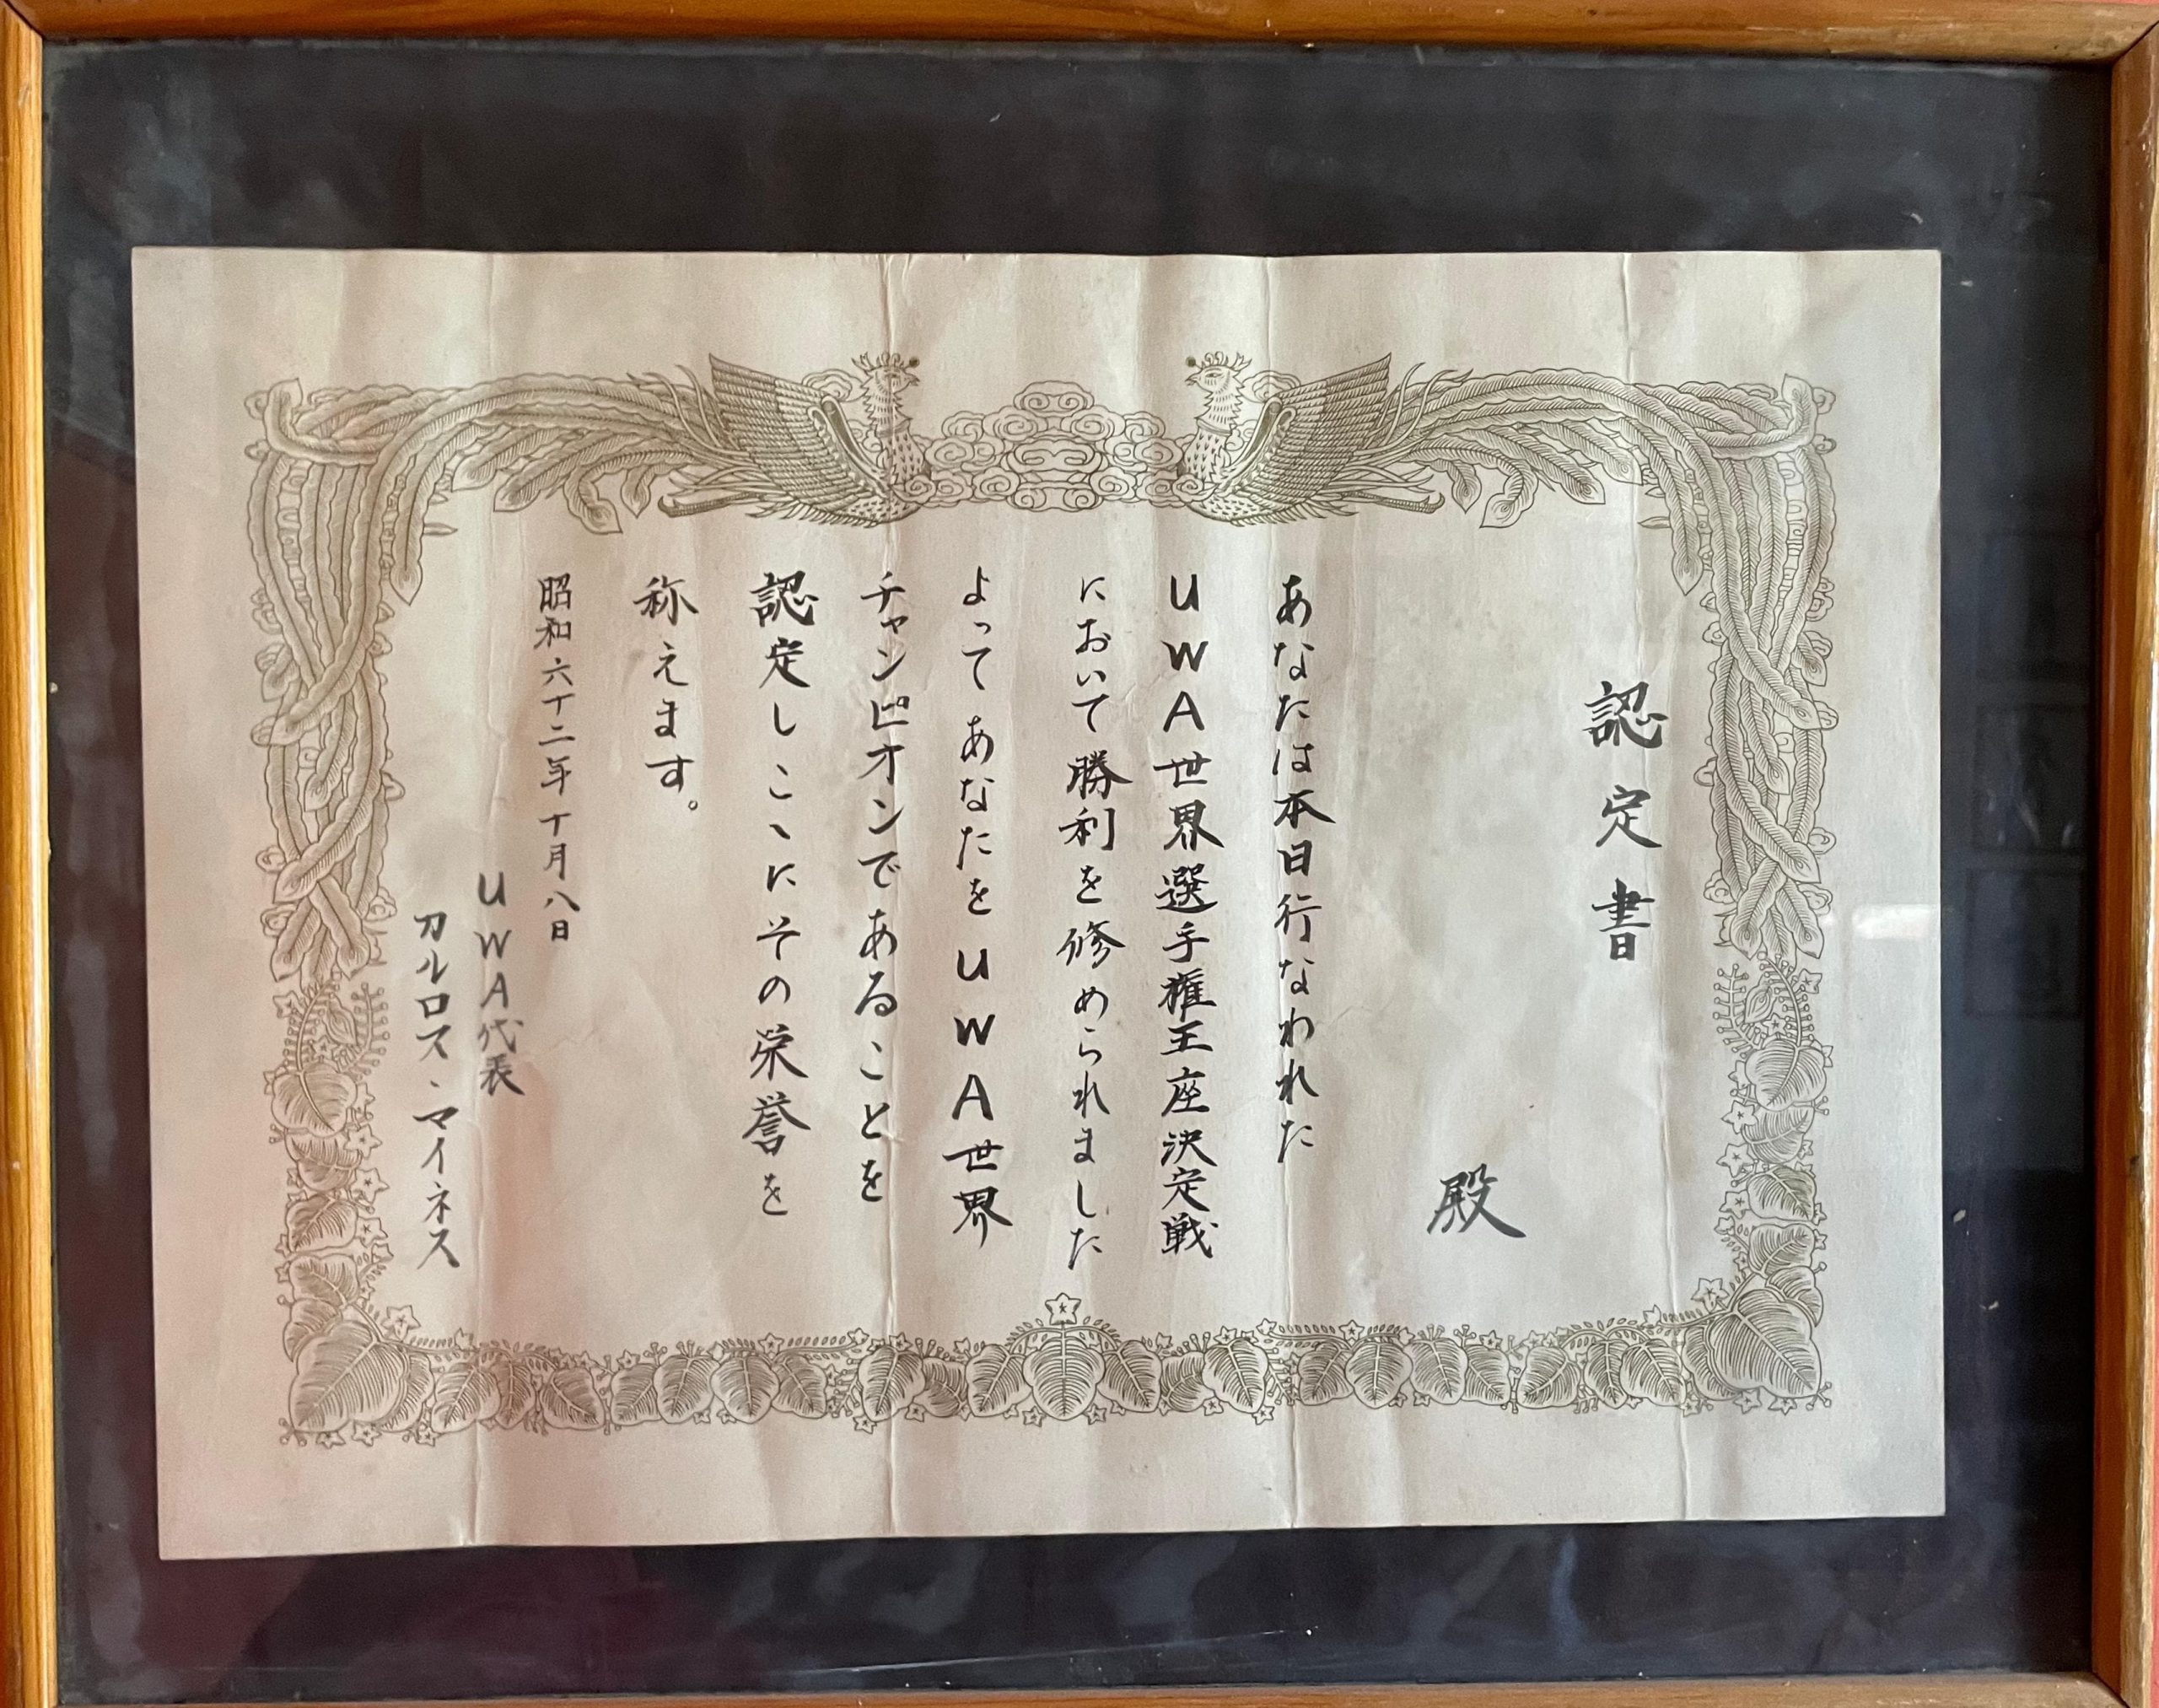 認定書
殿
あなたは本日行なわれた
UWA世界選手権王座決定戦
において勝利を修められました
よってあなたをUWA世界
チャンピオンであることを
認定しこゝにその栄誉を
称えます。
昭和六十二年十月八日
UWA代表
カルロス・マイネス